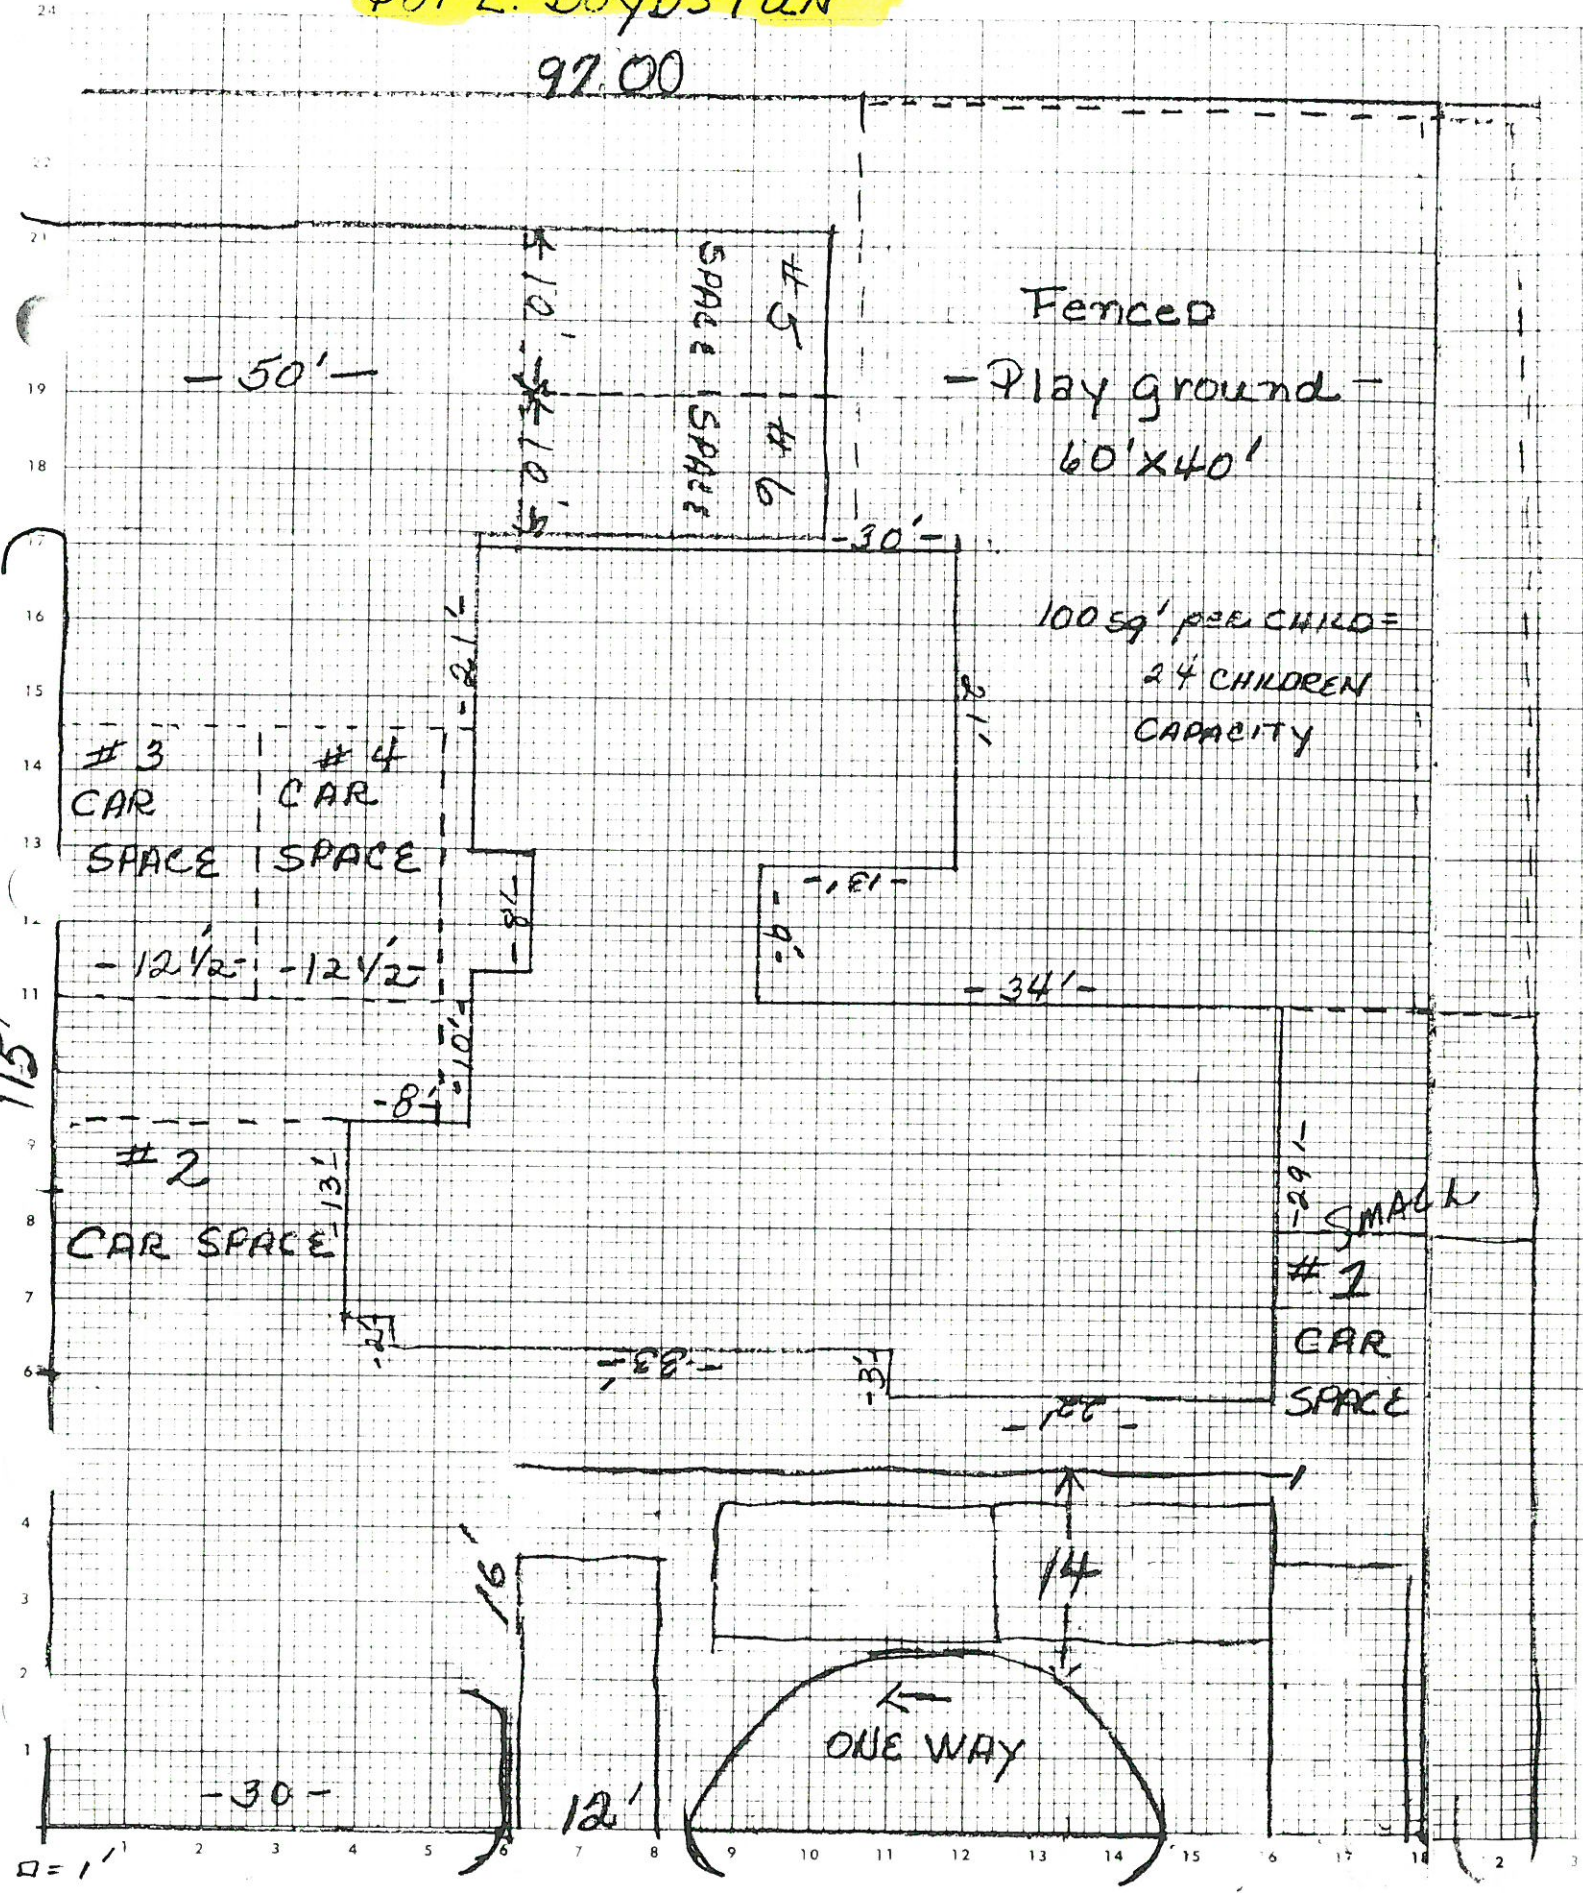 L. BOYDSTUN
97.00
24
22
21
19
18
17
16
15
14
13
12
11
9
8
7
6
4
3
2
1
- 50' -
10'
SPACE
#5
10'
SPACE
#6
Fenced
- Play ground -
60' X 40'
- 30' -
- 21' -
21'
100 sq' per CHILD =
24 CHILDREN
CAPACITY
#3
CAR
SPACE
#4
CAR
SPACE
- 12 1/2 -
- 12 1/2 -
- 8' -
- 13' -
- 9' -
- 34' -
- 10' -
115'
- 8' -
#2
CAR SPACE
- 13' -
- 2' -
- 33' -
- 3' -
- 22' -
- 29' -
SMALL
#1
CAR
SPACE
16'
14
←
ONE WAY
- 30 -
12'
1 2 3 4 5 6 7 8 9 10 11 12 13 14 15 16 17 18 2 3
□ = 1'